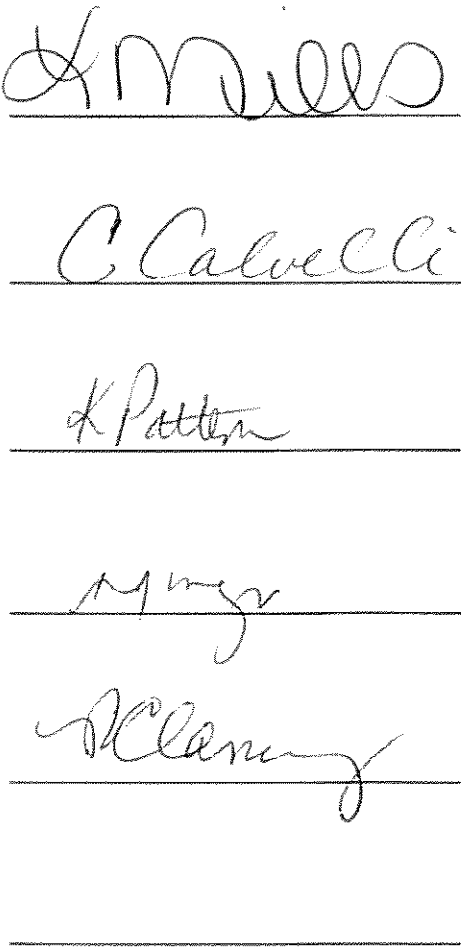 K Mills
C Calvelli
K Patten
R Clancy